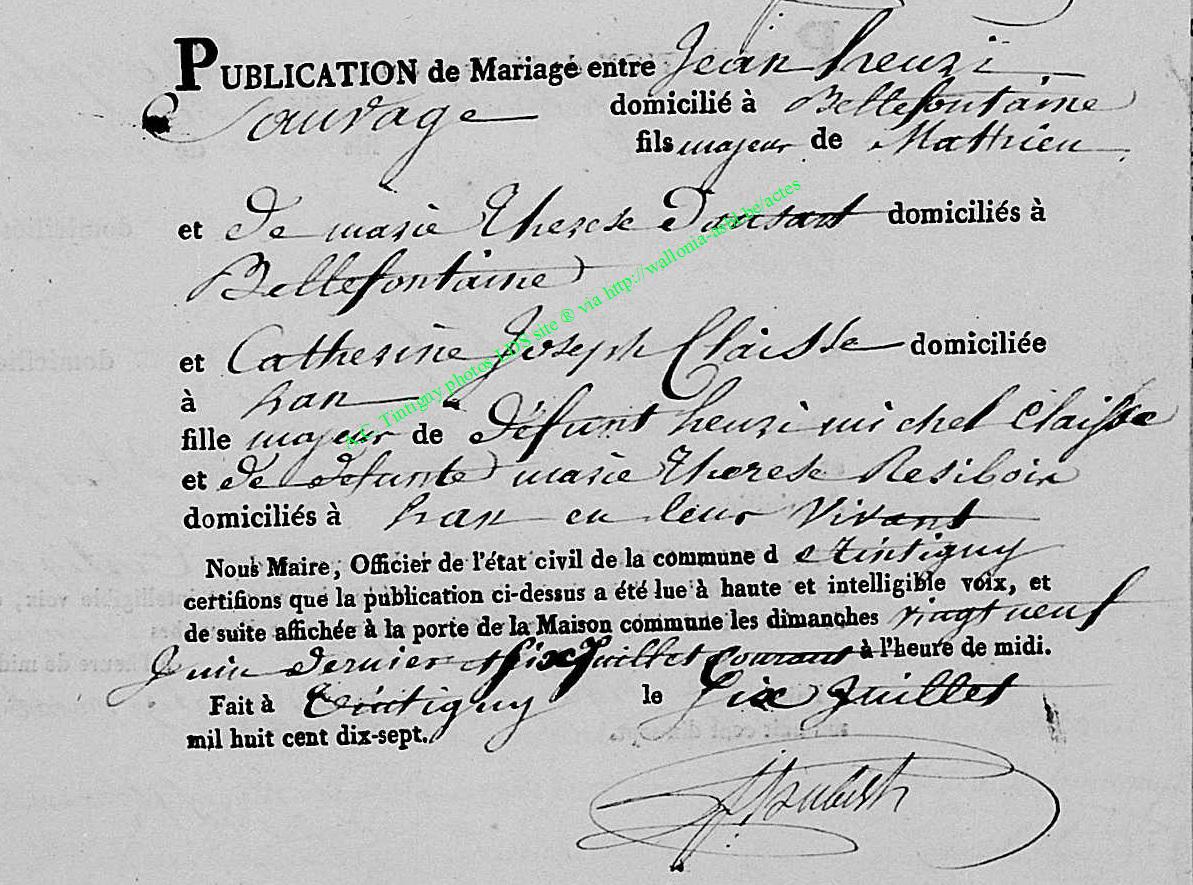 PUBLICATION de Mariage entre Jean henri
Sauvage domicilié à Bellefontaine
fils majeur de Mathieu
et de marie therese domiciliés à
Bellefontaine
et Catherine Joseph Claisse domiciliée
à han
fille majeur de défunt henri michel Claisse
et de defunte marie therese Resiboix
domiciliés à han en leur vivant
Nous Maire, Officier de l'état civil de la commune d e tintigny
certifions que la publication ci-dessus a été lue à haute et intelligible voix, et
de suite affichée à la porte de la Maison commune les dimanches vingt neuf
Juin dernier et six Juillet courant à l'heure de midi.
Fait à tintigny le six Juillet
mil huit cent dix-sept.
A.C. Tintigny photos LDS site ® via http://wallonia-asbl.be/actes